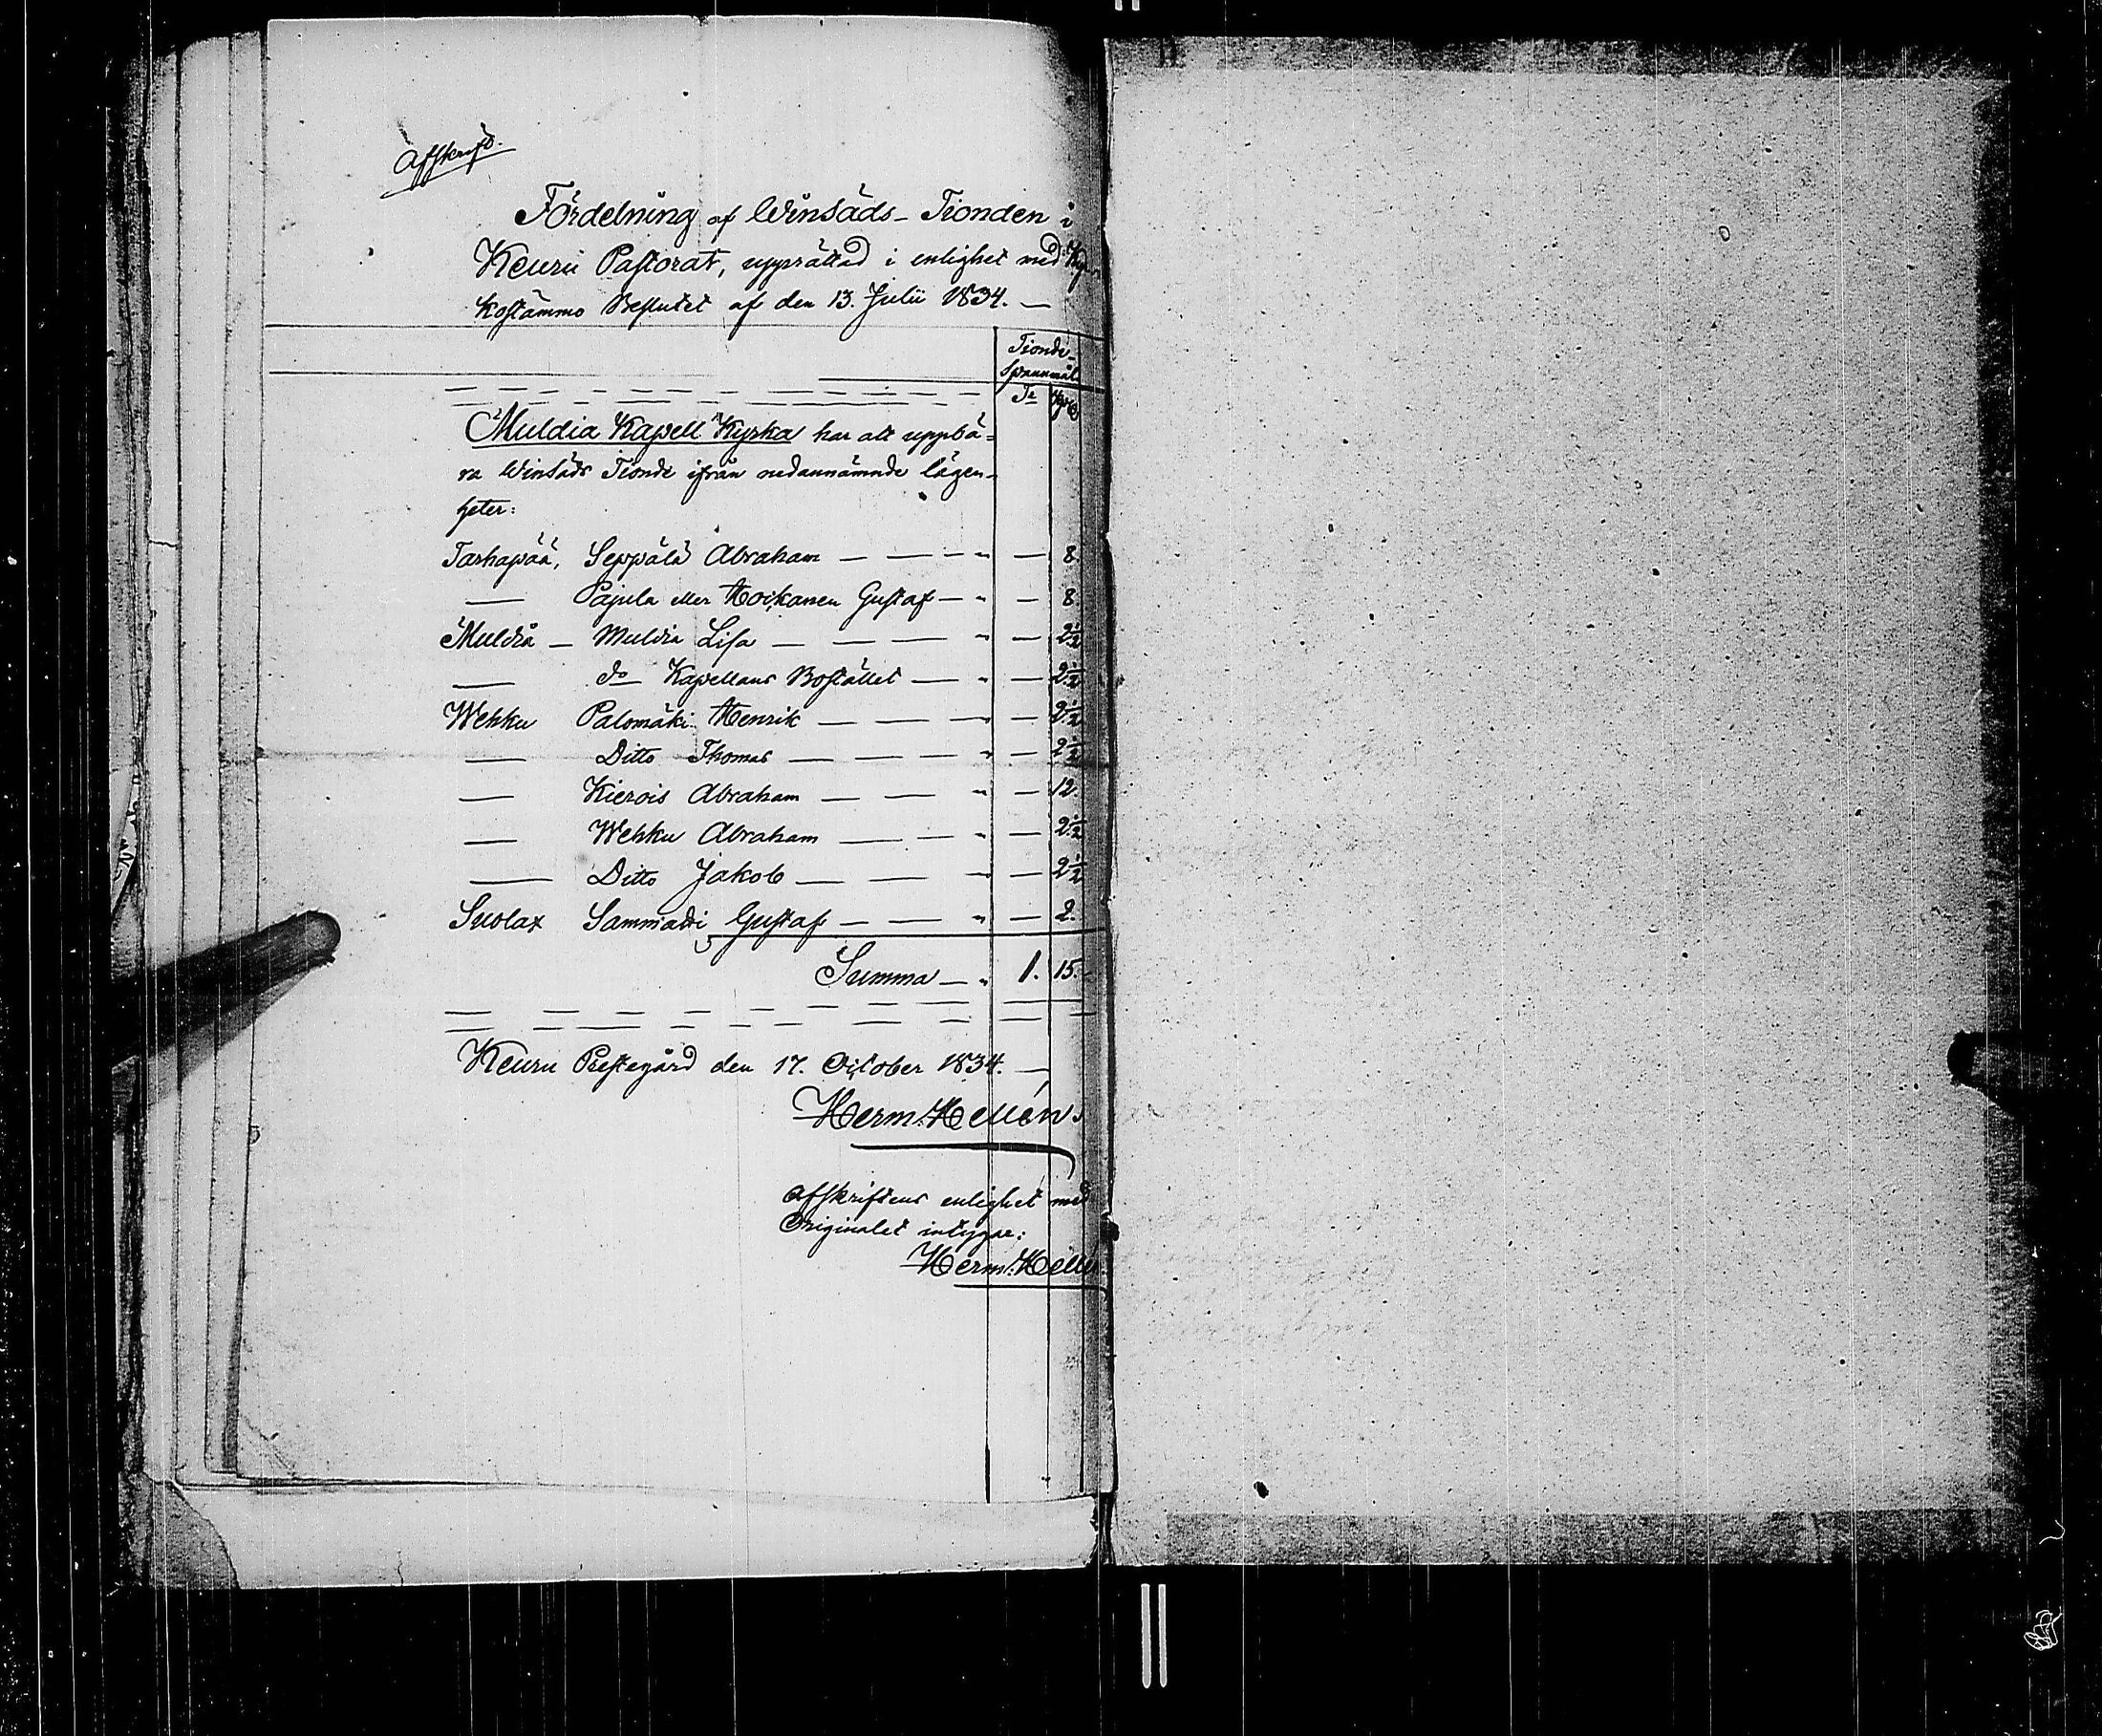 Afskrift.
Fördelning af Winsäds-Tionden i
Keuru Pastorat, upprättad i enlighet med Kyr
kostämmo Beslutet af den 13. Julii 1834. —
Tionde-
Spannmål
Tr Kpr
Muldia Kapell Kyrka har att uppbä-
ra Winsäds Tionde ifrån nedannämnde lägen-
heter:
Tarhapää, Seppälä Abraham — — — — 8.
— Pajula eller Hoikanen Gustaf — — 8.
Muldia — Muldia Lisa — — — — 2½
— do Kapellans Bostället — — 2½
Wehku Palomäki Henrik — — — — 2½
— Ditto Thomas — — — — 2½
— Kierois Abraham — — — 12.
— Wehku Abraham — — — 2½
— Ditto Jakob — — — — 2½
Suolax Gustaf — — — 2.
Summa — 1. 15.
Keuru Prestegård den 17. October 1834. —
Herm: Hellén.
Afskriftens enlighet med
Originalet intygar:
Herm: Hellén